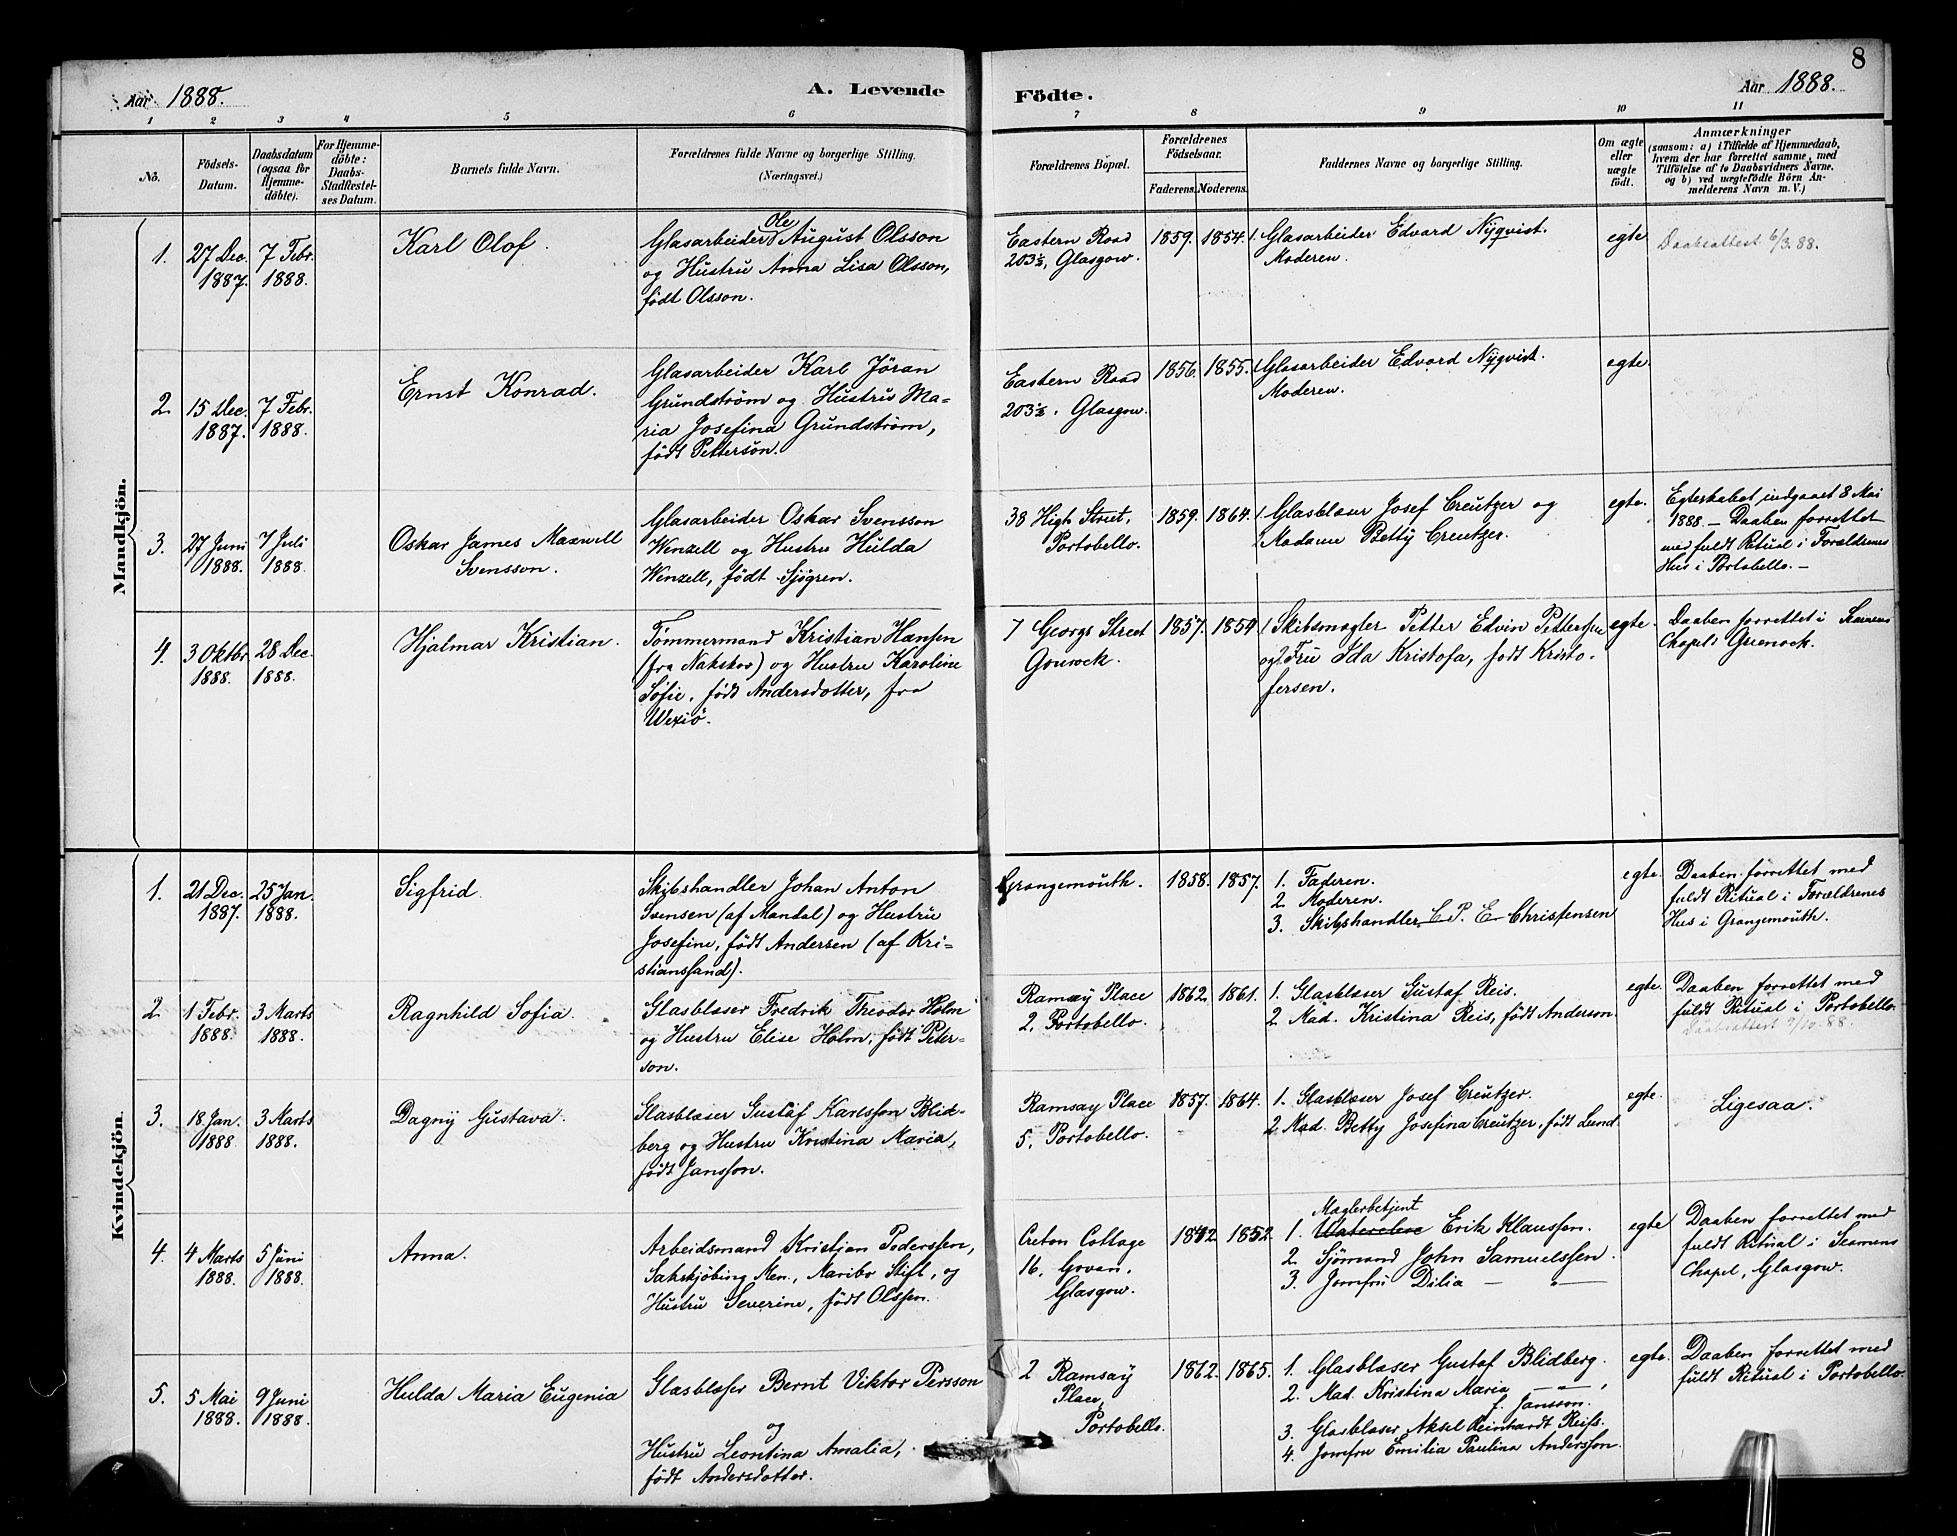 8
Aar 1888.
A. Levende
Födte.
Aar 1888.
1 2 3 4 5 6 7 8 9 10 11
No.
Födsels-
Datum.
Daabsdatum
(ogsaa for
Hjemme-
döbte).
For Hjemme-
döbte:
Daabs-
Stadfæstel-
ses Datum.
Barnets fulde Navn.
Forældrenes fulde Navne og borgerlige Stilling.
(Næringsvei.)
Forældrenes Böpæl.
Forældrenes
Födselsaar.
Faderens.
Moderens.
Faddernes Navne og borgerlige Stilling.
Om ægte
eller
uægte
födt.
Anmærkninger
(saasom: a) i Tilfælde af Hjemmedaab,
hvem der har forrettet samme, med
Tilföielse af to Daabsvidners Navne,
og b) ved uægtefödte Börn An-
melderens Navn m. V.)
Mandkjön.
1.
27 Dec.
1887.
7 Febr.
1888.
Karl Olof.
Ole
Glasarbeider August Olsson
og Hustru Anna Lisa Olsson,
født Olsson.
Eastern Road
203½, Glasgow.
1859.
1854.
1. Glasarbeider Edvard Nyqvist.
Moderen.
egte
Daabsattest 6/3. 88.
2.
15 Dec.
1887.
7 Febr.
1888.
Ernst Konrad.
Glasarbeider Karl Jöran
Grundström og Hustru Ma-
ria Josefina Grundström,
født Petterson.
Eastern Road
203½. Glasgow.
1856.
1855.
Glasarbeider Edvard Nyqvist.
Moderen.
egte.
3.
27 Juni
1888.
7 Juli
1888.
Oskar James Maxwell
Svensson.
Glasarbeider Oskar Svensson
Wenzell og Hustru Hulda
Wenzell, født Sjøgren.
38 High Street,
Portobello.
1859.
1864.
Glasblaser Josef Creutzer og
Madame Betty Creutzer.
egte.
Egteskabet indgaaet 8 Mai
1888. – Daaben forrettet
med fuldt Ritual i Forældrenes
Hus i Portobello. –
4.
3 Oktbr
1888.
28 Dec.
1888.
Hjalmar Kristian.
Tømmermand Kristian Hansen
(fra Nakskov) og Hustru Karoline
Sofie, født Andersdotter, fra
Wexiö.
7 Georgs Street
Gourock.
1857.
1854
1 Skibsmægler Petter Edvin Pettersen
og 2 Fru Ida Kristofa, født Kristo-
fersen.
egte.
Daaben forrettet i Seamens
Chapel i Greenock.
Kvindekjön.
1.
21 Dec.
1887.
25 Jan.
1888.
Sigfrid.
Skibshandler Johan Anton
Svensen (af Mandal) og Hustru
Josefine, født Andersen (af Kri-
stianssand).
Grangemouth.
1858.
1857.
1. Faderen.
2. Moderen.
3. Skibshandler C. P. E. Christensen
egte.
Daaben forrettet med
fuldt Ritual i Forældrenes
Hus i Grangemouth.
2.
1 Febr.
1888.
3 Marts
1888.
Ragnhild Sofia.
Glasblaser Fredrik Theodor Holm
og Hustru Elise Holm, født Peter-
son.
Ramsay Place
2. Portobello.
1862.
1861.
1. Glasblaser Gustaf Reis.
2. Mad. Kristina Reis, født Anderson.
egte.
Daaben forrettet med
fuldt Ritual i Portobello.
Daabsattest 9/10. 88.
3.
18 Jan.
1888.
3 Marts
1888.
Dagny Gustava.
Glasblaser Gustaf Karlsson Blid-
berg og Hustru Kristina Maria,
født Jansson.
Ramsay Place
5. Portobello.
1857.
1864.
1. Glasblaser Josef Creutzer.
2. Mad. Betty Josefina Creutzer, født Lund.
egte.
Ligesaa.
4.
4 Marts
1888.
5 Juni
1888.
Anna.
Arbeidsmand Kristjan Pederssen,
Sakskjøbing Men., Maribo Stift, og
Hustru Severine, født Olssen.
Creton Cottage
16. Govan.
Glasgow.
1842
1852.
Maglerbetjent
1. Erik Klaussen.
2. Sjømand John Samuelssen.
3. Jomfru Dilia — —
egte
Daaben forrettet med
fuldt Ritual i Seamens
Chapel, Glasgow.
5.
5 Mai
1888.
9 Juni
1888.
Hulda Maria Eugenia
Glasblaser Bernt Viktor Persson
og
Hustru Leontina Amalia,
født Andersdotter.
2 Ramsay
Place,
Portobello.
1862.
1865.
1. Glasblaser Gustaf Blidberg.
2. Mad. Kristina Maria — „ — ,
f. Jansson.
3. Glasblaser Aksel Reinhardt Reiss.
4. Jomfru Emilia Paulina Andersson.
egte.
Daaben forrettet med
fuldt Ritual i Portobello.